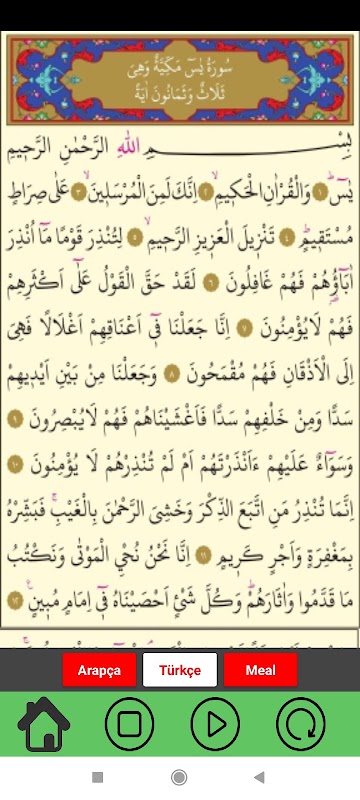 سُورَةُ يٰسٓ مَكِّيَّةٌ وَهِيَ
ثَلَاثٌ وَثَمَانُونَ اٰيَةً
بِسْمِ اللّٰهِ الرَّحْمٰنِ الرَّحٖيمِ
يٰسٓ ﴿١﴾ وَالْقُرْاٰنِ الْحَكٖيمِۙ ﴿٢﴾ اِنَّكَ لَمِنَ الْمُرْسَلٖينَۙ ﴿٣﴾ عَلٰى صِرَاطٍ
مُسْتَقٖيمٍؕ ﴿٤﴾ تَنْزٖيلَ الْعَزٖيزِ الرَّحٖيمِۙ ﴿٥﴾ لِتُنْذِرَ قَوْمًا مَٓا اُنْذِرَ
اٰبَٓاؤُ۬هُمْ فَهُمْ غَافِلُونَ ﴿٦﴾ لَقَدْ حَقَّ الْقَوْلُ عَلٰٓى اَكْثَرِهِمْ
فَهُمْ لَا يُؤْمِنُونَ ﴿٧﴾ اِنَّا جَعَلْنَا فٖٓي اَعْنَاقِهِمْ اَغْلَالًا فَهِيَ
اِلَى الْاَذْقَانِ فَهُمْ مُقْمَحُونَ ﴿٨﴾ وَجَعَلْنَا مِنْ بَيْنِ اَيْدٖيهِمْ
سَدًّا وَمِنْ خَلْفِهِمْ سَدًّا فَاَغْشَيْنَاهُمْ فَهُمْ لَا يُبْصِرُونَ ﴿٩﴾
وَسَوَٓاءٌ عَلَيْهِمْ ءَاَنْذَرْتَهُمْ اَمْ لَمْ تُنْذِرْهُمْ لَا يُؤْمِنُونَ ﴿١٠﴾
اِنَّمَا تُنْذِرُ مَنِ اتَّبَعَ الذِّكْرَ وَخَشِيَ الرَّحْمٰنَ بِالْغَيْبِۚ فَبَشِّرْهُ
بِمَغْفِرَةٍ وَاَجْرٍ كَرٖيمٍ ﴿١١﴾ اِنَّا نَحْنُ نُحْيِ الْمَوْتٰى وَنَكْتُبُ
مَا قَدَّمُوا وَاٰثَارَهُمْؕ وَكُلَّ شَيْءٍ اَحْصَيْنَاهُ فٖٓي اِمَامٍ مُبٖينٍۚ ﴿١٢﴾
Arapça Türkçe Meal